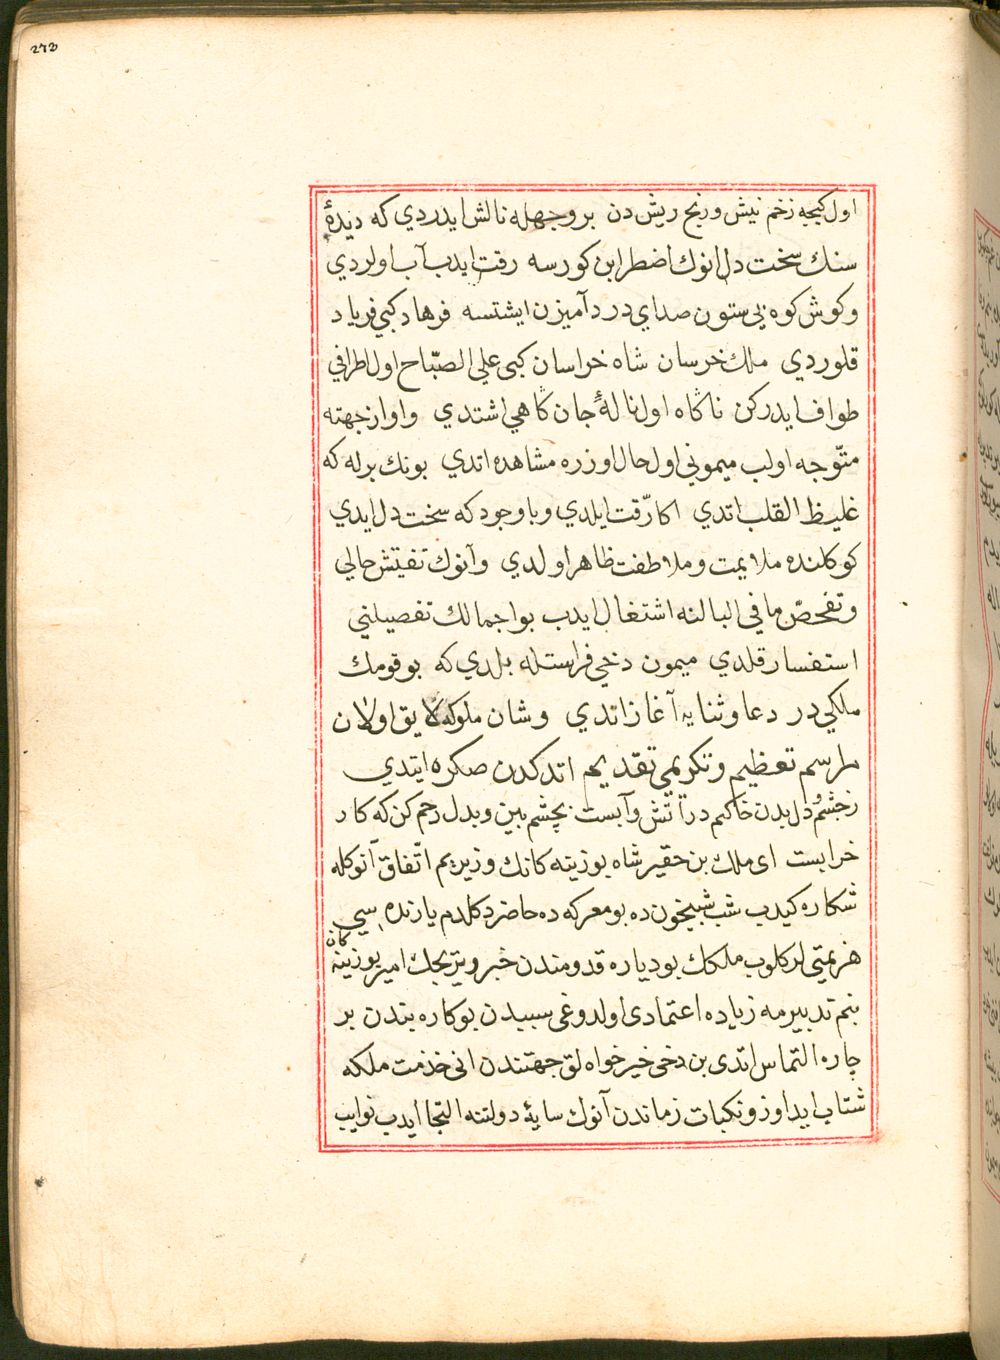 ٢٧٣
اول كيجه زخم نيش و رنج ريش دن بر وجهله نالش ايدردي كه ديدۀ
سنك سخت دل انوك اضطرابن كورسه رقت ايدب آب اولردي
وكوش كوه بى ستون صداي درد آميزن ايشتسه فرهاد كبي فرياد
قلوردي ملك خرسان شاه خراسان كبى على الصّباح اول اطرافي
طواف ايدركن ناكاه اول نالۀ جان كاهي اشتدي و اواز جهته
متوّجه اولب ميموني اول حال اوزره مشاهده اتدي بونك برله كه
غليظ القلب اتدي اكا رّقت ايلدي وبا وجود كه سخت دل ايدي
كوكلنده ملايمت وملاطفت ظاهر اولدي وآنوك تفتيش حالي
وتفحصّ ما في البالنه اشتغال ايدب بو اجمالك تفصيلني
استفسار قلدي ميمون دخي فراستله بلدي كه بو قومك
ملكي در دعا وثنايه آغاز اتدي وشان ملوكه لايق اولان
مراسم تعظيم وتكريمي تقديم اتدكدن صكره ايتدي
زچشم و دل بدن خاكيم در آتش وآبست بچشم ببين وبدل رحم كن كه كار
خرابست اى ملك بن حقير شاه بوزينه كانك وزيريم اتّفاق آنوكله
شكاره كيدب شب شبيخون ده بو معركه ده حاضر دكلدم يارنده سي
هزيمتي لر كلوب ملكك بو دياره قدومندن خبر ويريجك امير بوزينه كان
بنم تدبيرمه زياده اعتمادى اولدوغى سببدن بو كاره بندن بر
چاره التماس اتدى بن دخى خير خواه لق جهتندن انى خذمت ملكه
شتاب ايد اوز ونكبات زماندن آنوك سايۀ دولتنه التجا ايدب نوايب